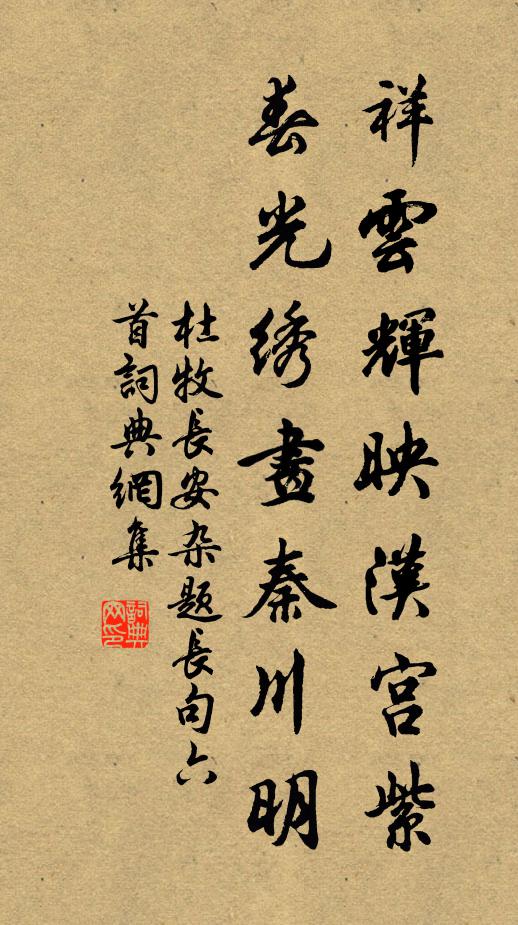 祥雲輝映漢宮紫
春光綉畫秦川明
杜牧長安杂題長句六
首詞典網集
詞典網印